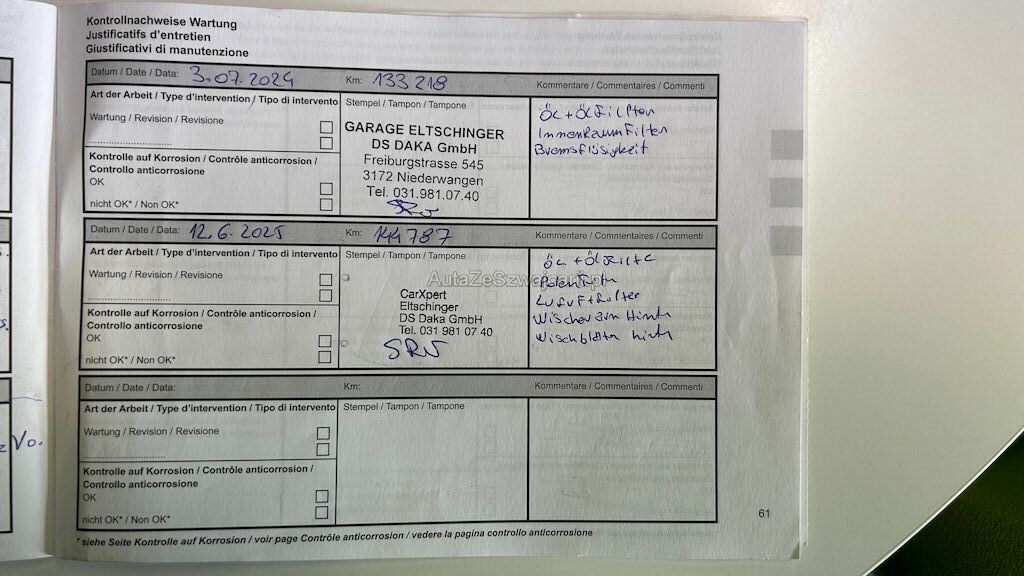 Kontrollnachweise Wartung
Justificatifs d'entretien
Giustificativi di manutenzione
Datum / Date / Data: 3.07.2024 Km: 133 218 Kommentare / Commentaires / Commenti
Art der Arbeit / Type d'intervention / Tipo di intervento Stempel / Tampon / Tampone
Wartung / Revision / Revisione
Kontrolle auf Korrosion / Contrôle anticorrosion /
Controllo anticorrosione
OK
nicht OK* / Non OK*
GARAGE ELTSCHINGER
DS DAKA GmbH
Freiburgstrasse 545
3172 Niederwangen
Tel. 031.981.07.40
SRJ
ÖL + ÖLFilter
InnenRaumFilter
Bremsflüssigkeit
Datum / Date / Data: 12.6.2025 Km: 144787 Kommentare / Commentaires / Commenti
Art der Arbeit / Type d'intervention / Tipo di intervento Stempel / Tampon / Tampone
Wartung / Revision / Revisione
Kontrolle auf Korrosion / Contrôle anticorrosion /
Controllo anticorrosione
OK
nicht OK* / Non OK*
AutaZeSzwajcarii.pl
CarXpert
Eltschinger
DS Daka GmbH
Tel. 031 981 07 40
SRJ
ÖL + ÖLFilte
Wischerarm Hinten
Wischblätter hinten
Datum / Date / Data: Km: Kommentare / Commentaires / Commenti
Art der Arbeit / Type d'intervention / Tipo di intervento Stempel / Tampon / Tampone
Wartung / Revision / Revisione
Kontrolle auf Korrosion / Contrôle anticorrosion /
Controllo anticorrosione
OK
nicht OK* / Non OK*
* siehe Seite Kontrolle auf Korrosion / voir page Contrôle anticorrosion / vedere la pagina controllo anticorrosione
61